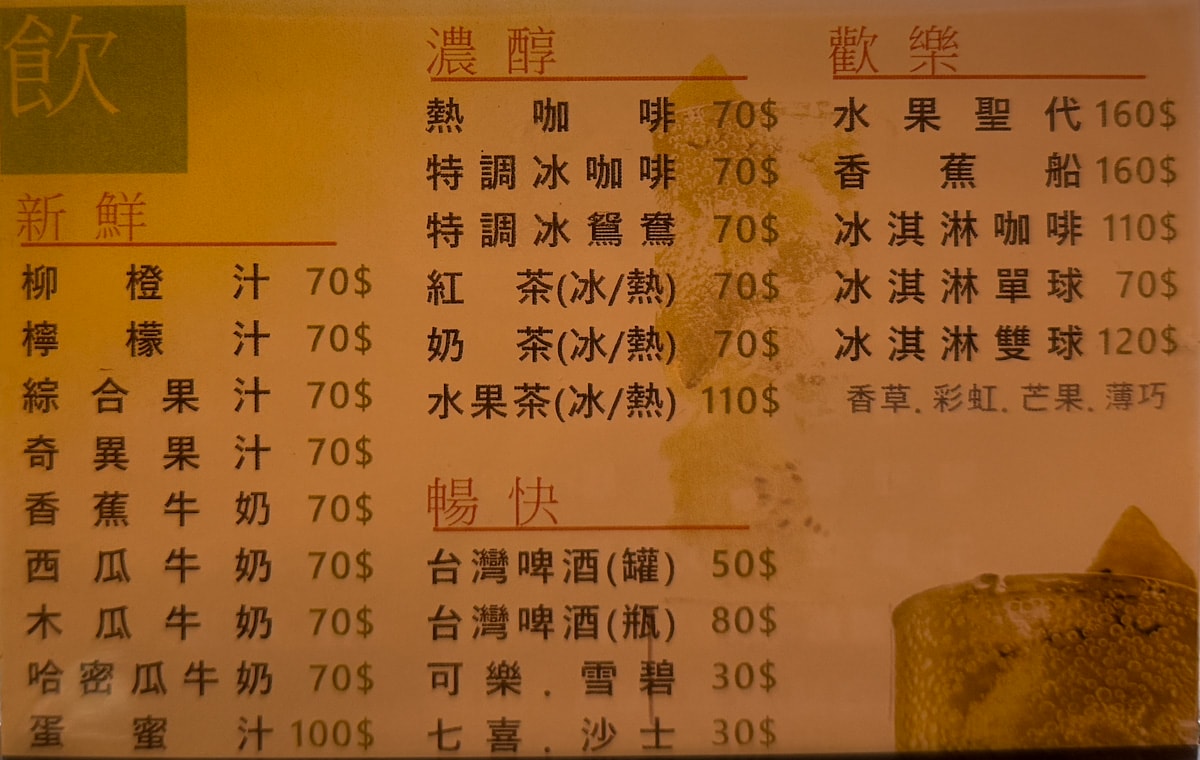 飲
新鮮
柳橙汁 70$
檸檬汁 70$
綜合果汁 70$
奇異果汁 70$
香蕉牛奶 70$
西瓜牛奶 70$
木瓜牛奶 70$
哈密瓜牛奶 70$
蛋蜜汁 100$
濃醇
熱咖啡 70$
特調冰咖啡 70$
特調冰鴛鴦 70$
紅茶(冰/熱) 70$
奶茶(冰/熱) 70$
水果茶(冰/熱) 110$
暢快
台灣啤酒(罐) 50$
台灣啤酒(瓶) 80$
可樂.雪碧 30$
七喜.沙士 30$
歡樂
水果聖代 160$
香蕉船 160$
冰淇淋咖啡 110$
冰淇淋單球 70$
冰淇淋雙球 120$
香草.彩虹.芒果.薄巧